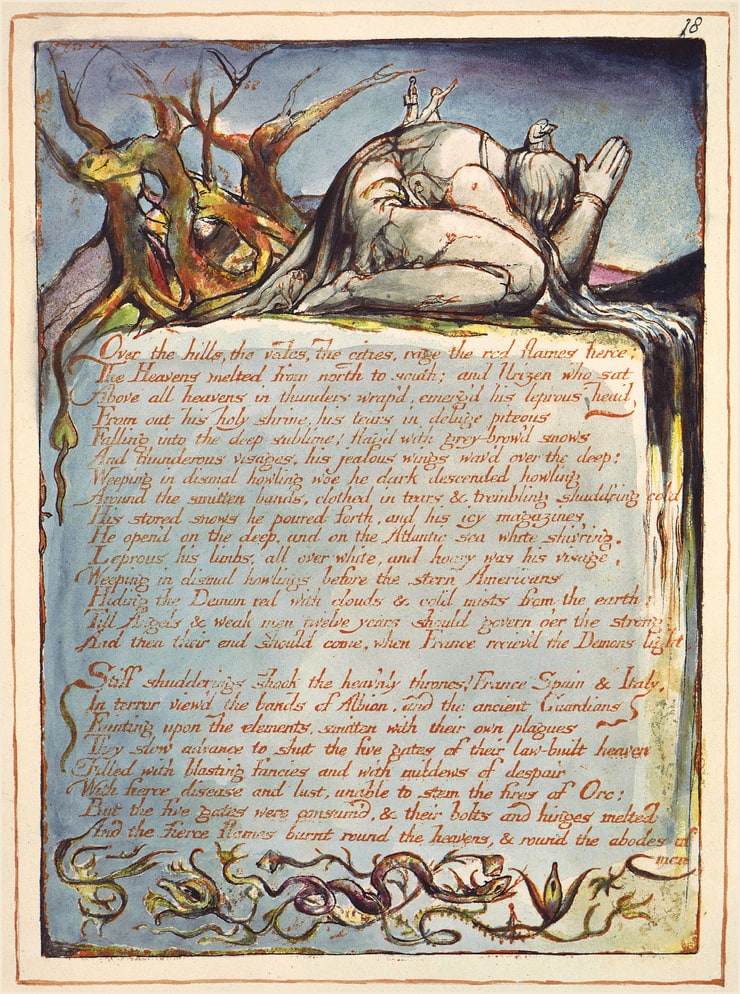 18
Over the hills, the vales, the cities, rage the red flames fierce;
The Heavens melted from north to south; and Urizen who sat
Above all heavens in thunders wrap'd, emerg'd his leprous head
From out his holy shrine, his tears in deluge piteous
Falling into the deep sublime! flag'd with grey-brow'd snows
And thunderous visages, his jealous wings wav'd over the deep;
Weeping in dismal howling woe he dark descended howling
Around the smitten bands, clothed in tears & trembling shudd'ring cold
His stored snows he poured forth, and his icy magazines
He open'd on the deep, and on the Atlantic sea white shiv'ring.
Leprous his limbs, all over white, and hoary was his visage.
Weeping in dismal howlings before the stern Americans
Hiding the Demon red with clouds & cold mists from the earth;
Till Angels & weak men twelve years should govern o'er the strong:
And then their end should come, when France reciev'd the Demons light
Stiff shudderings shook the heav'nly thrones! France Spain & Italy,
In terror view'd the bands of Albion, and the ancient Guardians
Fainting upon the elements, smitten with their own plagues
They slow advance to shut the five gates of their law-built heaven
Filled with blasting fancies and with mildews of despair
With fierce disease and lust, unable to stem the fires of Orc;
But the five gates were consum'd, & their bolts and hinges melted
And the fierce flames burnt round the heavens, & round the abodes of
men